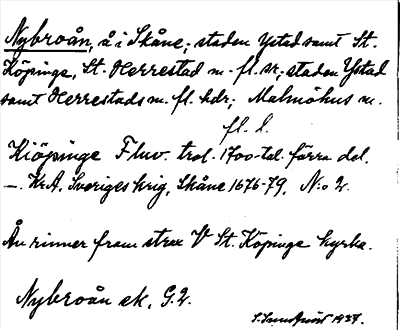 Nybroån, å i Skåne; staden Ystad samt St.
Köpinge, St. Herrestad m. fl. sr; staden Ystad
samt Herrestads m. fl. hdr; Malmöhus m.
fl. l.
Kiöpinge Fluv. trol. 1700-tal. förra del.
–. Kr A. Sveriges krig, Skåne 1676-79, N:o 2.
Ån rinner fram strax V St. Köpinge kyrka.
Nybroån ek. G.2.
1937.